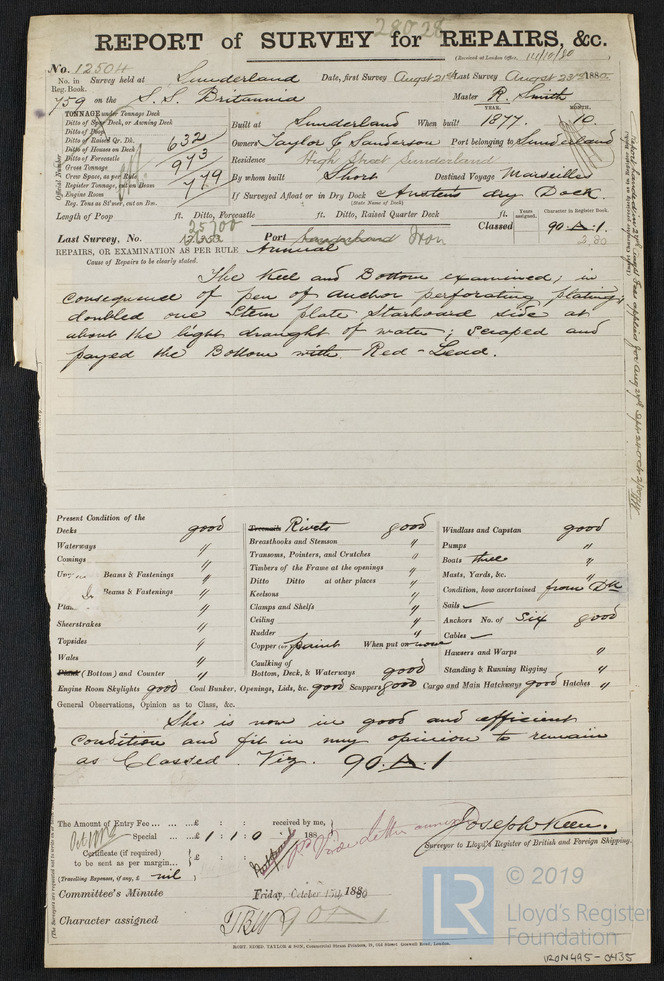 28028
REPORT of SURVEY for REPAIRS, &c.
(Received at London Office, 14/10/80
No. 12504
No. in Survey held at Sunderland Date, first Survey Augst 21st Last Survey Augst 23rd 1880
Reg. Book.
759 on the S.S. Britannia Master R. Smith
TONNAGE under Tonnage Deck
Ditto of Spar Deck, or Awning Deck
Ditto of Poop
Ditto of Raised Qr. Dk. 632
Ditto of Houses on Deck
Ditto of Forecastle
Gross Tonnage 973
Crew Space, as per Rule
Register Tonnage, cut on Beam 779
Engine Room
Reg. Tons as St'mer, cut on Bm.
YEAR. MONTH.
Built at Sunderland When built 1877. 10.
Owners Taylor & Sanderson Port belonging to Sunderland
Residence High Street Sunderland
By whom built Short Destined Voyage Marseilles
If Surveyed Afloat or in Dry Dock Austens dry Dock.
(State Name of Dock)
Length of Poop ft. Ditto, Forecastle ft. Ditto, Raised Quarter Deck ft.
Years assigned. Character in Register Book.
Classed 90 A.1.
2.80
Last Survey, No. 25700 Port Sunderland Iron
REPAIRS, OR EXAMINATION AS PER RULE Annual
Cause of Repairs to be clearly stated.
The Keel and Bottom examined; in
consequence of pen of anchor perforating plating,
doubled one Stem plate Starboard side at
about the light draught of water; scraped and
payed the Bottom with Red-Lead.
Present Condition of the
Decks good
Waterways "
Comings "
Beams & Fastenings "
Beams & Fastenings "
"
Sheerstrakes "
Topsides "
Wales "
Plank (Bottom) and Counter "
Treenails Rivets good
Breasthooks and Stemson "
Transoms, Pointers, and Crutches "
Timbers of the Frame at the openings "
Ditto Ditto at other places "
Keelsons "
Clamps and Shelfs "
Ceiling "
Rudder "
Copper (or) paint When put on now
Caulking of
Bottom, Deck, & Waterways good
Windlass and Capstan good
Pumps "
Boats three "
Masts, Yards, &c. "
Condition, how ascertained from Dk
Sails
Anchors No. of Six good
Cables
Hawsers and Warps "
Standing & Running Rigging "
Engine Room Skylights good Coal Bunker, Openings, Lids, &c. good Scuppers good Cargo and Main Hatchways good Hatches "
General Observations, Opinion as to Class, &c.
She is now in good and efficient
condition and fit in my opinion to remain
as Classed. Viz. 90.A.1
The Amount of Entry Fee ... £ : : received by me,
Special ... £ 1 : 1 : 0 188
Certificate (if required) £ : :
to be sent as per margin...
(Travelling Expenses, if any, £ nil
Vide Letter annexed
Joseph Keen.
Surveyor to Lloyd's Register of British and Foreign Shipping.
Committee's Minute Friday, October 15th 1880
Character assigned 90 A 1
ROBT. STORD. TAYLOR & SON, Commercial Steam Printers, 19, Old Street, Goswell Road, London.
LR
© 2019
Lloyd's Register
Foundation
IRON495-0435